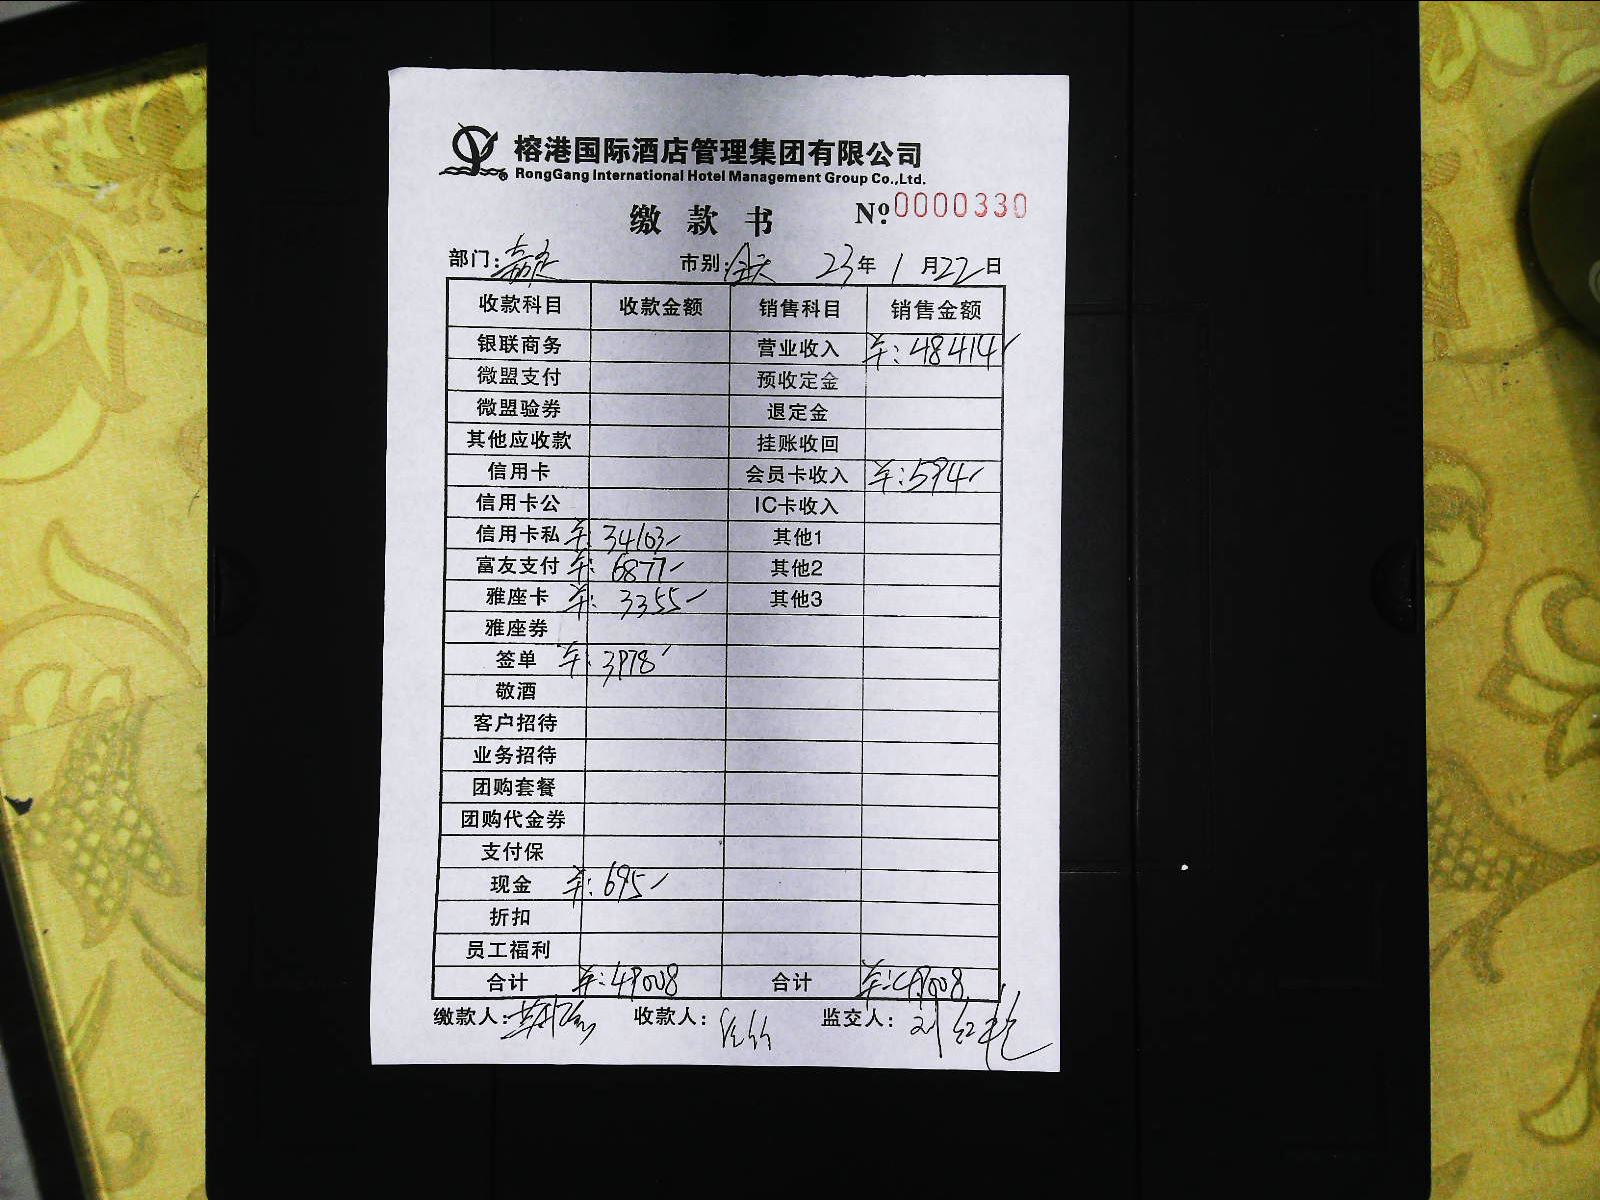 榕港国际酒店管理集团有限公司
RongGang International Hotel Management Group Co.,Ltd.
缴款书 №0000330
部门:嘉定 市别:全天 23年1月22日
收款科目 收款金额 销售科目 销售金额
银联商务 营业收入 ¥:48414
微盟支付 预收定金
微盟验券 退定金
其他应收款 挂账收回
信用卡 会员卡收入 ¥:594
信用卡公 IC卡收入
信用卡私 ¥:34103 其他1
富友支付 ¥:6877 其他2
雅座卡 ¥:3355 其他3
雅座券
签单 ¥:3978
敬酒
客户招待
业务招待
团购套餐
团购代金券
支付保
现金 ¥:695
折扣
员工福利
合计 ¥:49008 合计 ¥:49008
缴款人: 收款人: 监交人:刘红艳